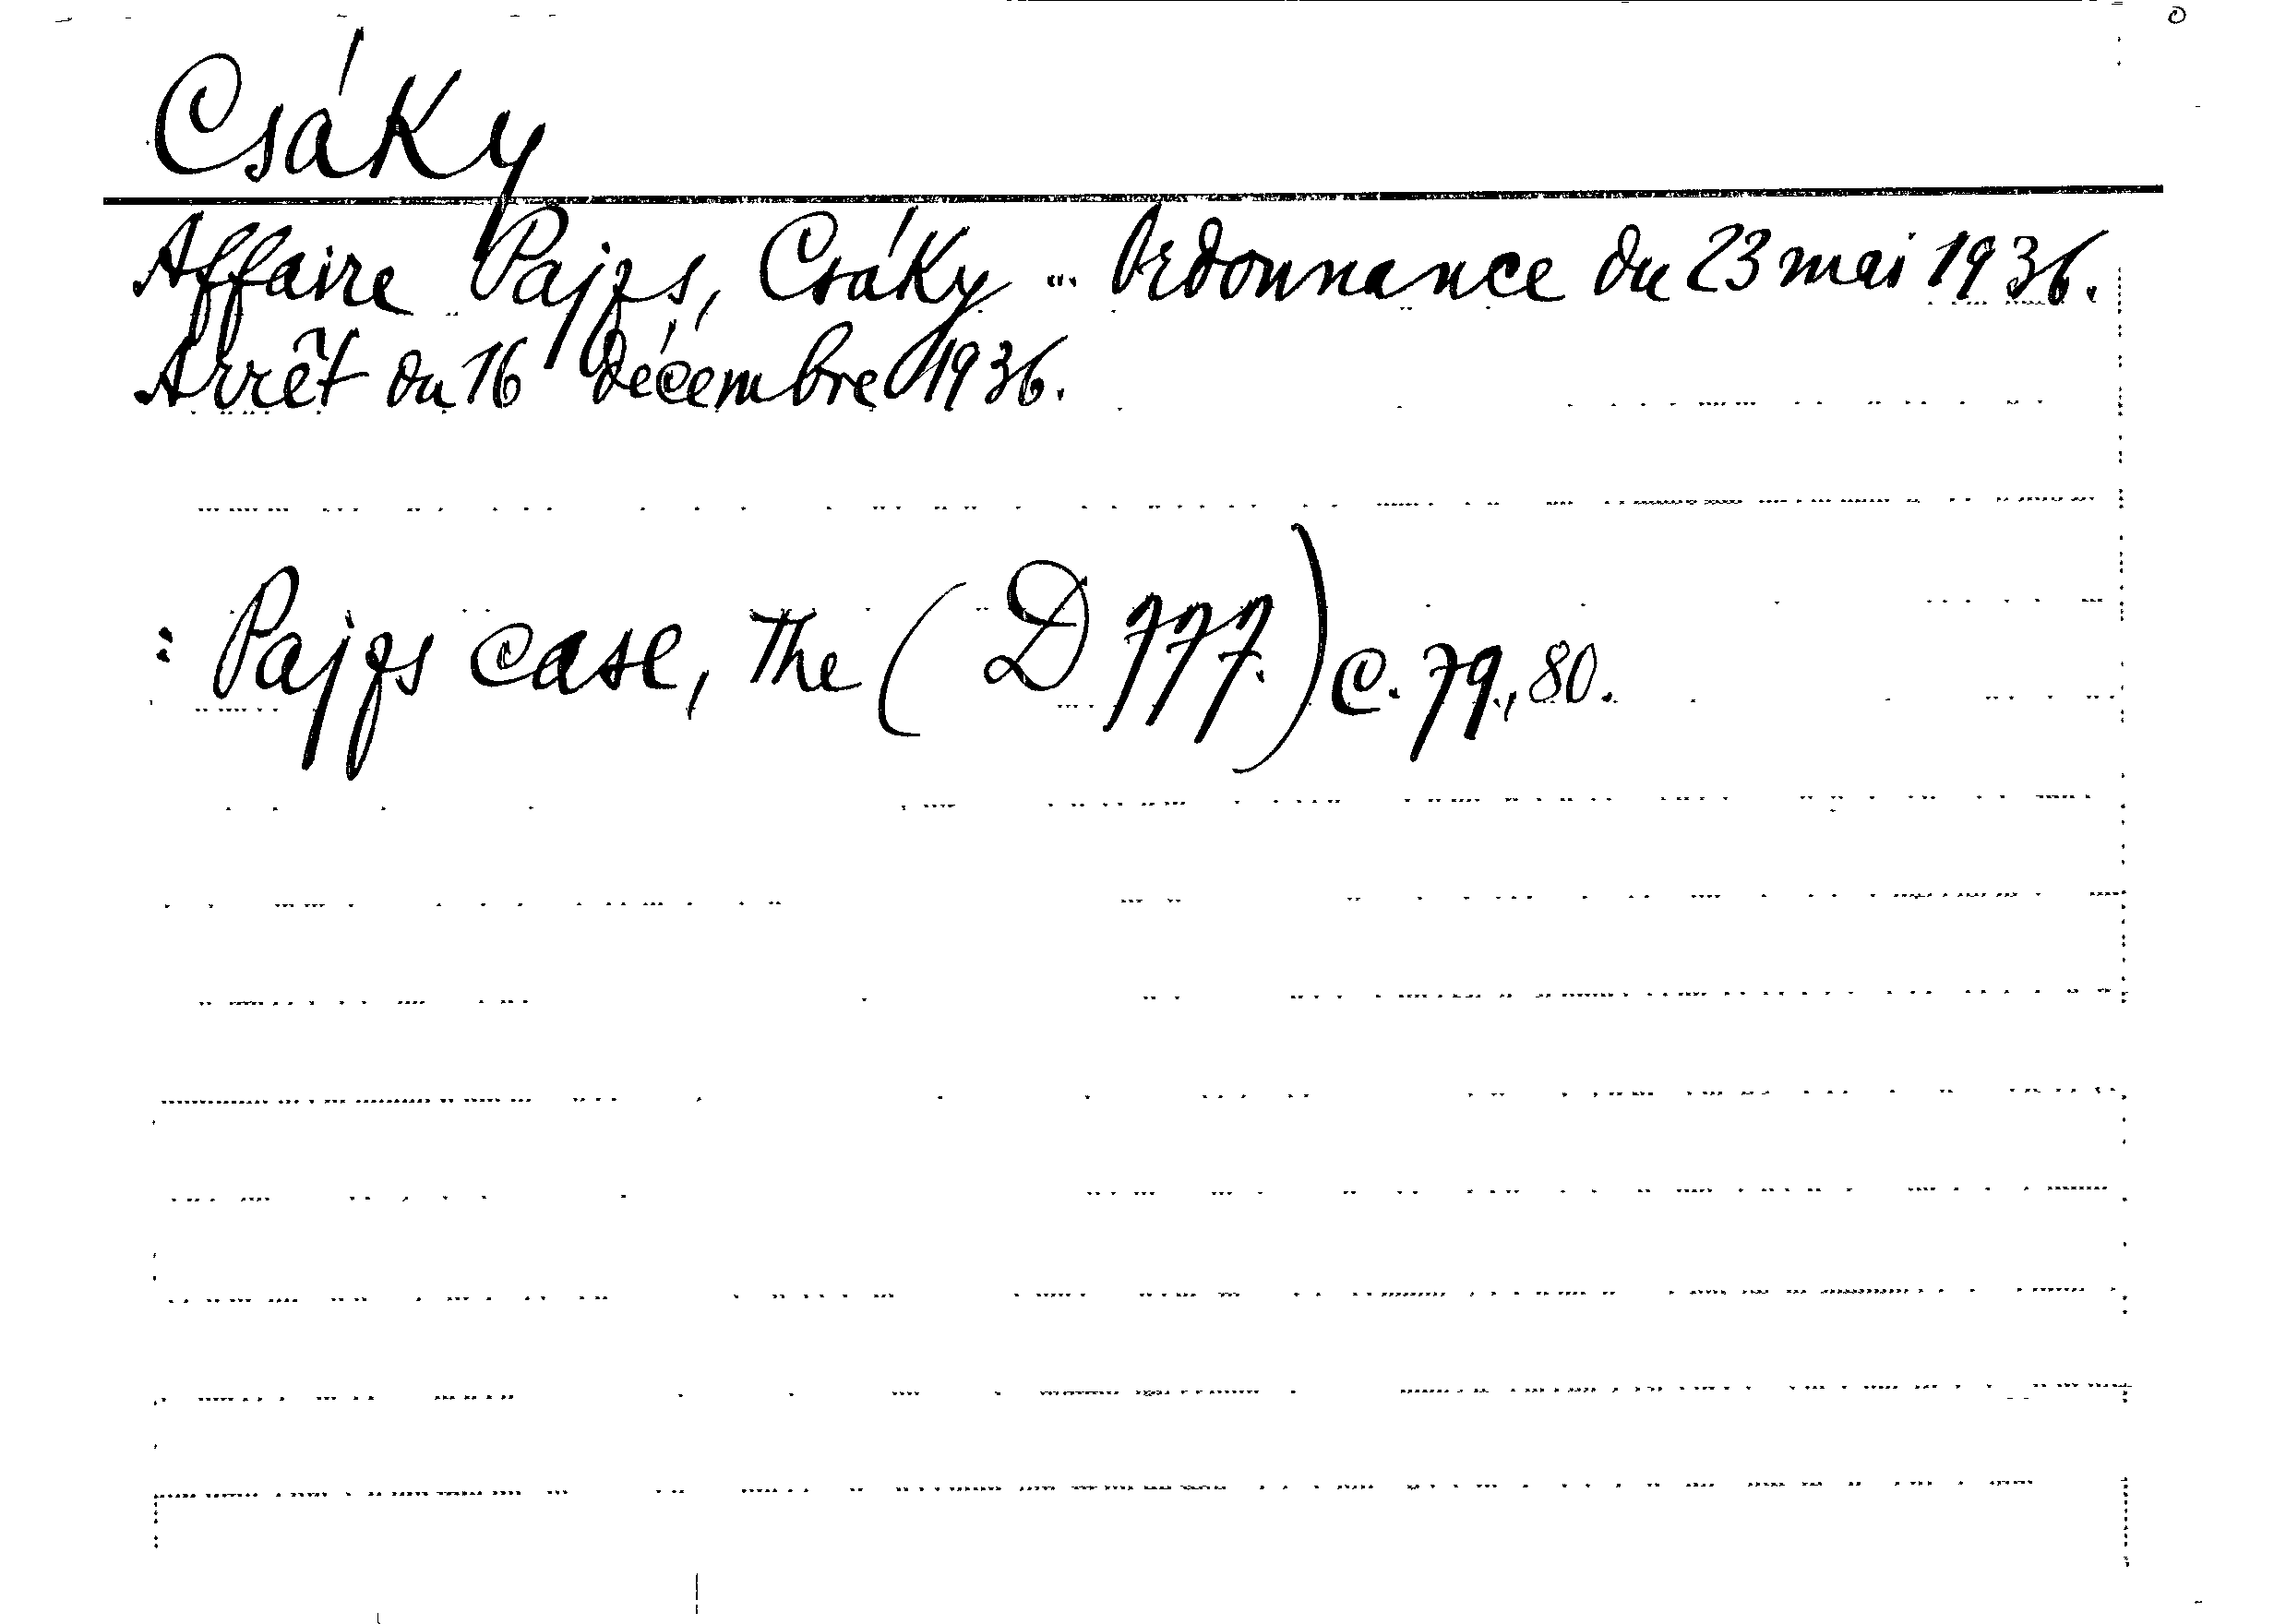 Csáky
Affaire Pajzs, Csáky ... Ordonnance du 23 mai 1936.
Arrêt du 16 décembre 1936.
: Pajzs case, the ( D 777.) C. 79., 80.